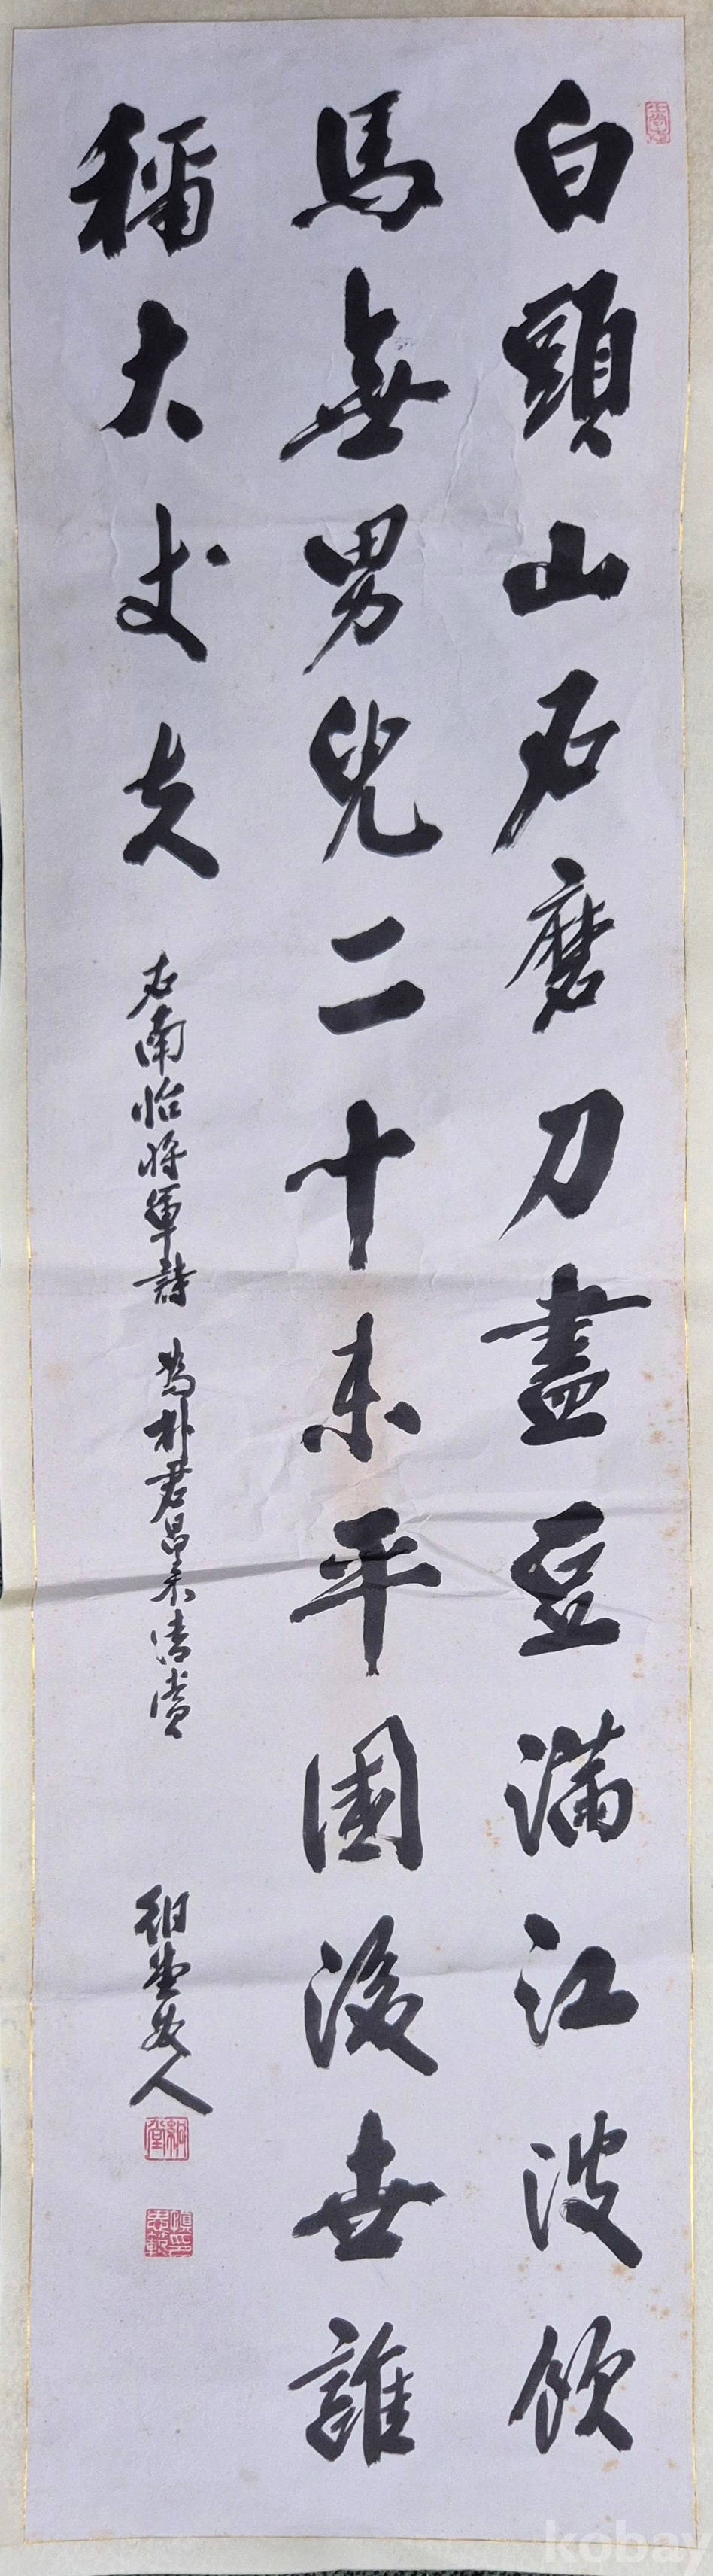 白頭山石磨刀盡豆滿江波飲
馬無男兒二十未平國後世誰
稱大丈夫
右南怡将軍詩 為朴君昌 清賞
絅堂 人
絅堂
kobay